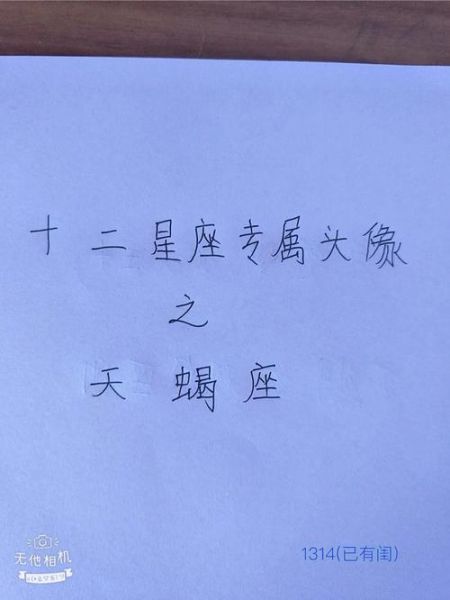 十二星座专属头像
之
天蝎座
无他相机
1314(已有闺)